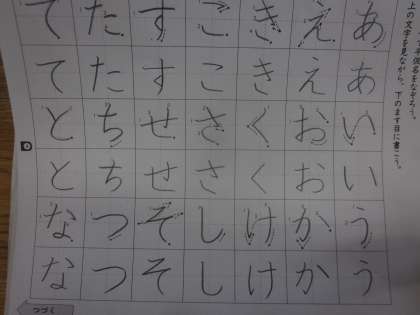 仮名をなぞろう。
上の文字を見ながら、下のます目に書こう。
ああいいうう
ええおおかか
ききくくけけ
ここささしし
すすせせそそ
たたちちつつ
ててととなな
つづく